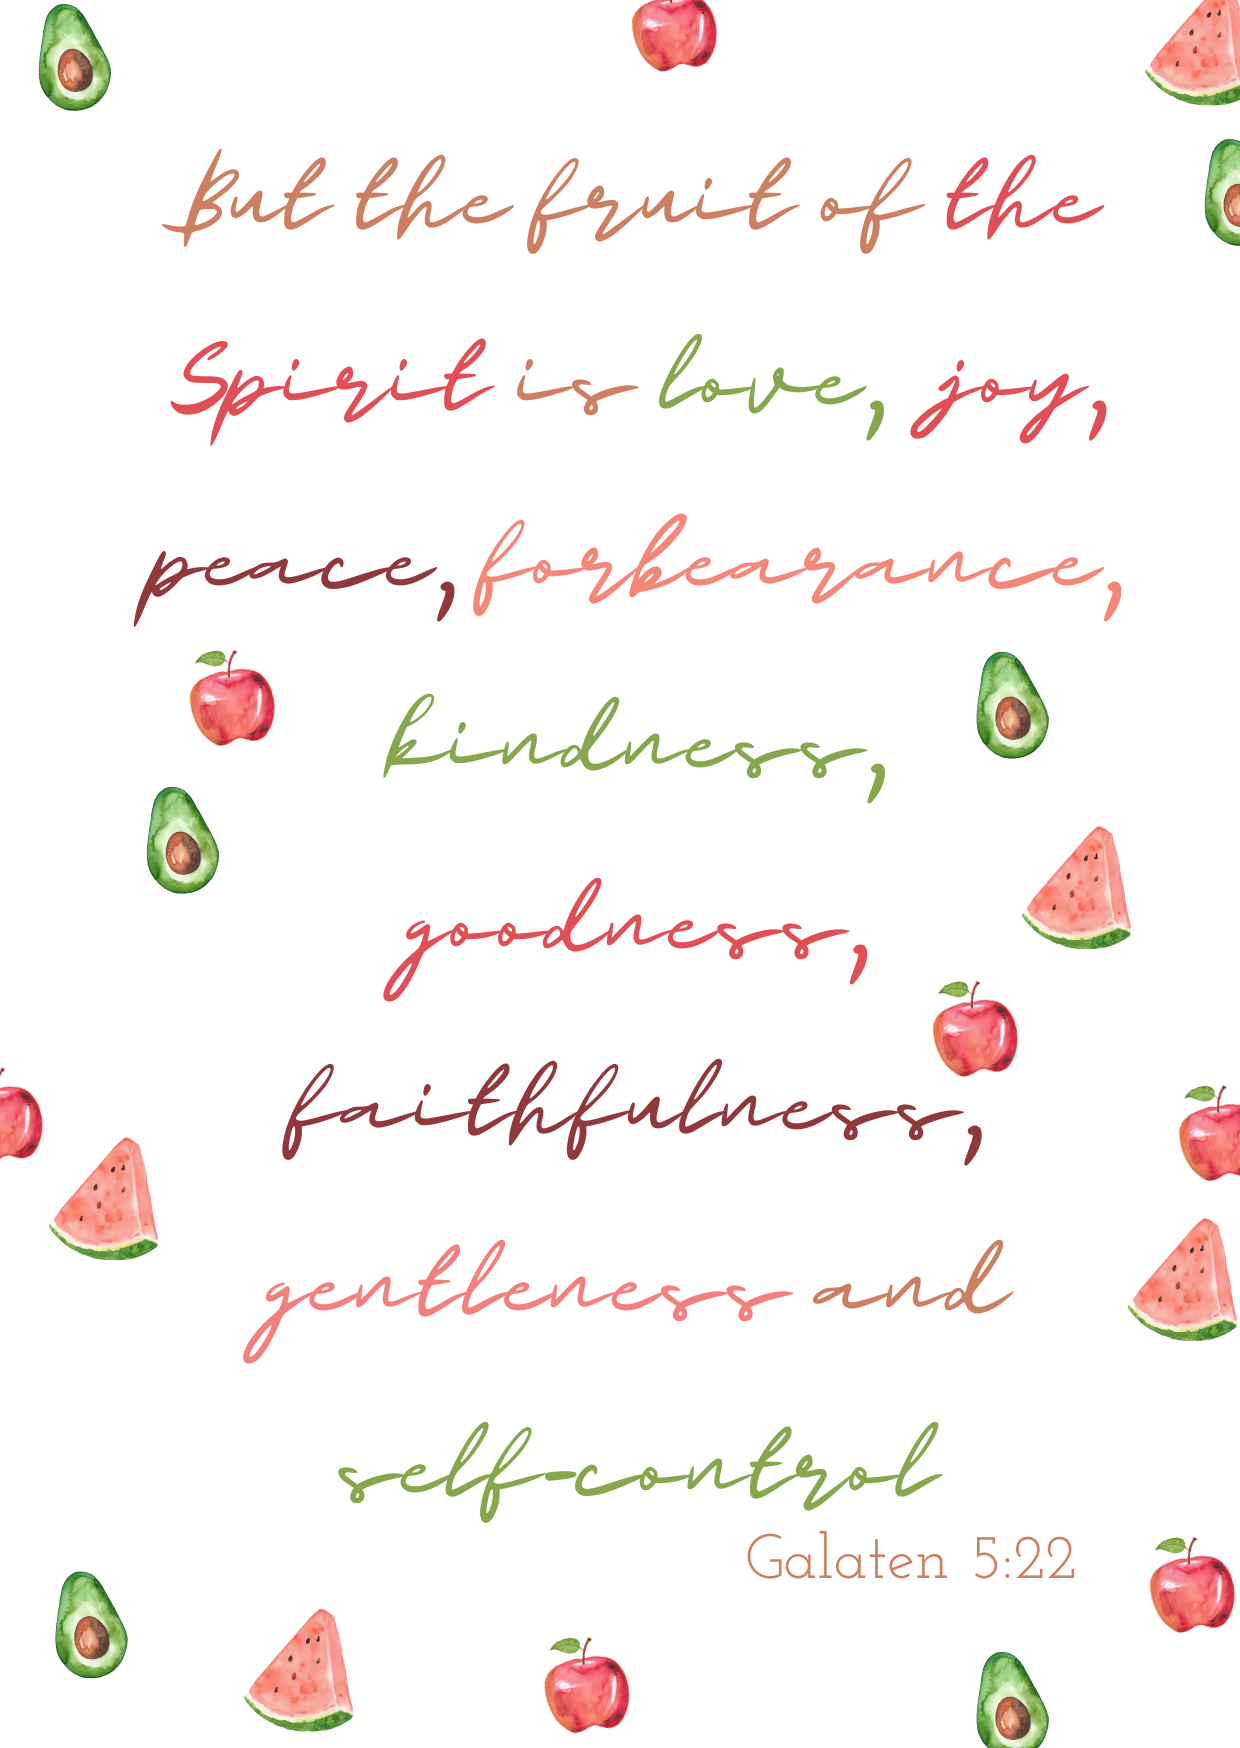 But the fruit of the
Spirit is love, joy,
peace, forbearance,
kindness,
goodness,
faithfulness,
gentleness and
self-control
Galaten 5:22